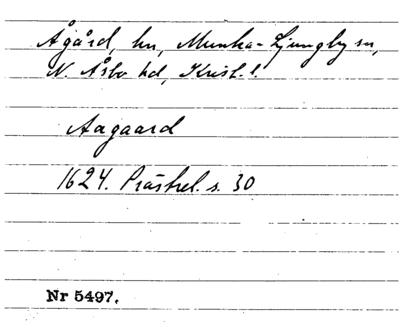 Ågård, hn, Munka-Ljungby sn,
N. Åsbo hd, Krist. l.
Aagaard
1624. Prästrel. s. 30
Nr 5497.